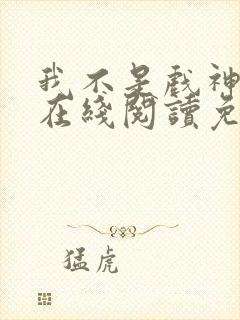 我不是戲神
在綫閱讀免
猛虎